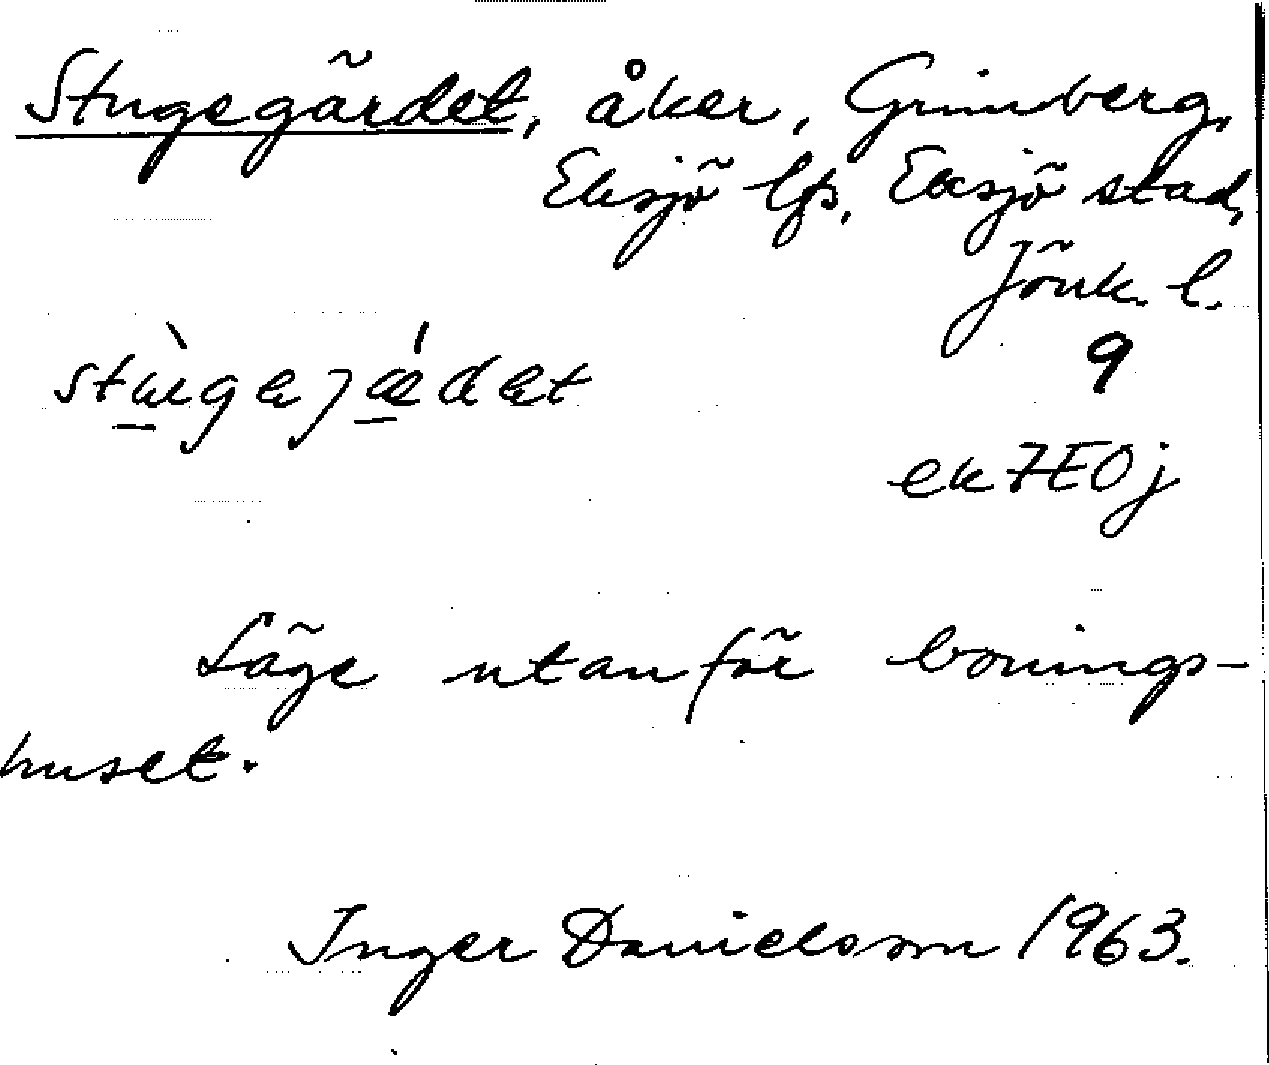 Stugegärdet, åker, Grimberg,
Eksjö lfs, Eksjö stad,
Jönk. l.
9
stùgejǽdet
ek 7E0j
Läge utanför bonings-
huset.
Inger Danielsson 1963.